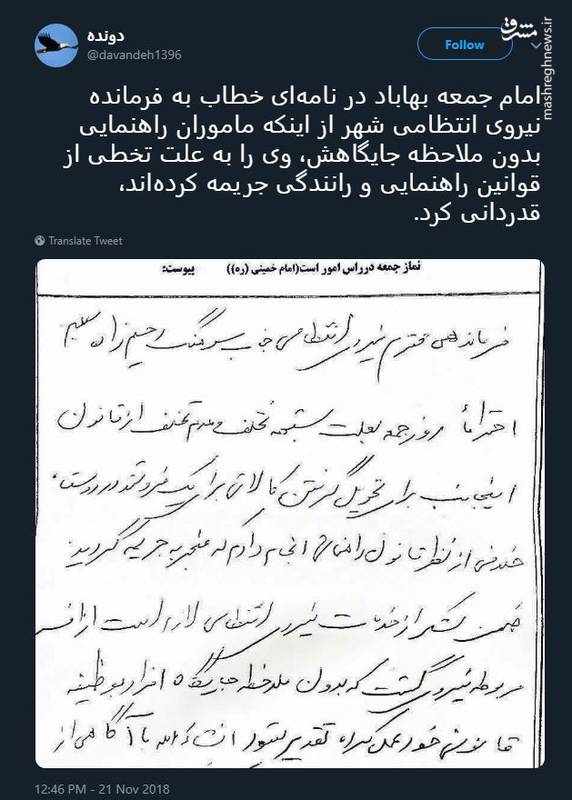 دونده
@davandeh1396
Follow
مشرق
mashreghnews.ir
امام جمعه بهاباد در نامه‌ای خطاب به فرمانده
نیروی انتظامی شهر از اینکه ماموران راهنمایی
بدون ملاحظه جایگاهش، وی را به علت تخطی از
قوانین راهنمایی و رانندگی جریمه کرده‌اند،
قدردانی کرد.
Translate Tweet
نماز جمعه درراس امور است(امام خمینی (ره)) پیوست:
فرماندهی محترم نیروی انتظامی جناب سرهنگ رحیم زاده
احتراماً روز جمعه بعلت تخلف از قانون
اینجانب برای تحویل گرفتن کالائی برای یک فروشنده
از نظر قانون راهنمائی انجام دادم که منجر به جریمه گردید
ضمن تشکر از خدمات نیروی انتظامی لازم است از افسر
مربوطه نیروی گشت که بدون ملاحظه جایگاه افراد بوظیفه
قانونی خود عمل کرده تقدیر بشود انشاءالله با آگاهی از
12:46 PM - 21 Nov 2018